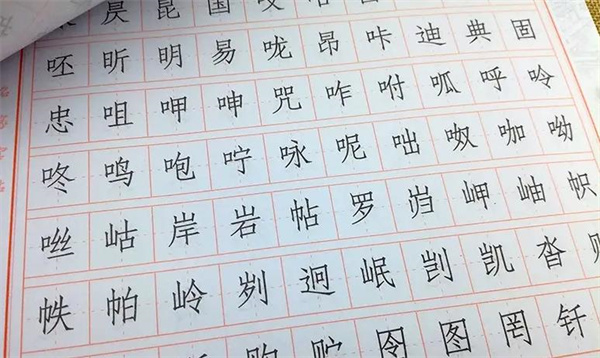 昃昆国
呸昕明易咙昂咔迪典固
忠咀呷呻咒咋咐呱呼呤
咚鸣咆咛咏呢咄呶咖呦
咝岵岸岩帖罗岿岬岫帜
帙帕岭刿迥岷剀凯沓
购贮囹图罔钎